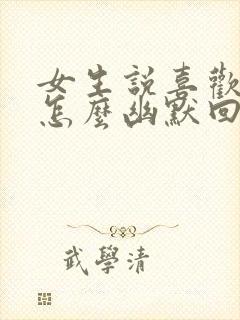 女生説喜歡
怎麼幽默回
武學清